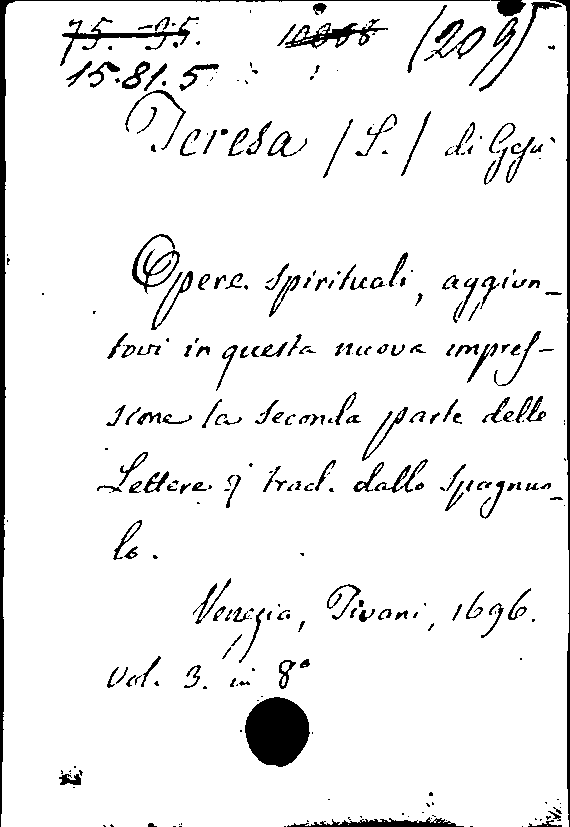 75.-35. (209).
15.81.5
Teresa /S./ di Gesù
Opere spirituali, aggiun-
tovi in questa nuova impres-
sione la seconda parte delle
Lettere; trad. dallo spagnuo-
lo.
Venezia, Pivani, 1696.
Vol. 3. in 8°